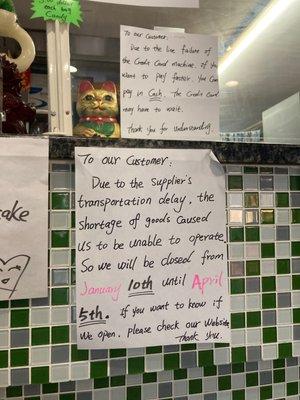 each bag
Candy
To our Customer:
Due to the line failure of
the Credit Card machine, if You
want to pay faster, You can
pay in Cash. The Credit Card
may have to wait.
Thank You for understanding.
To our Customer:
Due to the Supplier's
transportation delay, the
shortage of goods Caused
us to be unable to operate.
So we will be closed from
January 10th until April
5th. If you want to know if
We open, please check our Website
Thank You.
cake